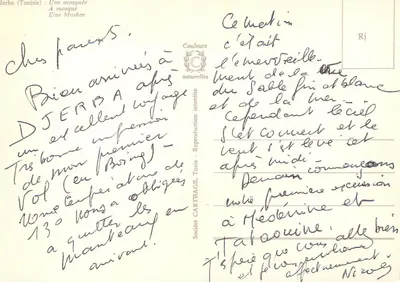 Jerba (Tunisie) : Une mosquée
A mosque
Eine Moschee
Couleurs
naturelles
Rj
Société CARTHAGE, Tunis - Reproduction interdite
Chers parents.
Bien arrivés à
DJERBA après
un excellent voyage
Très bonne impression
de mon premier
Vol (en Boeing)
Une température de
13° nous a obligés
a quitter les
manteaux en
arrivant.
Ce matin
c'était
l'émerveille-
ment de la vue
du sable fin et blanc
et de la mer
Cependant le ciel
s'est couvert et le
vent s'est levé cet
après midi.
Demain commençons
notre première excursion
à Médenine et
Tataouine.
J'espère que vous allez bien
et
affectueusement
Nicole